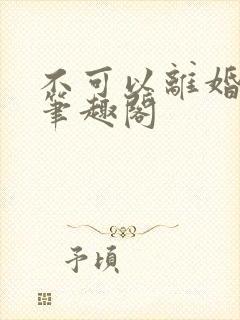 不可以離婚
筆趣閣
予頃